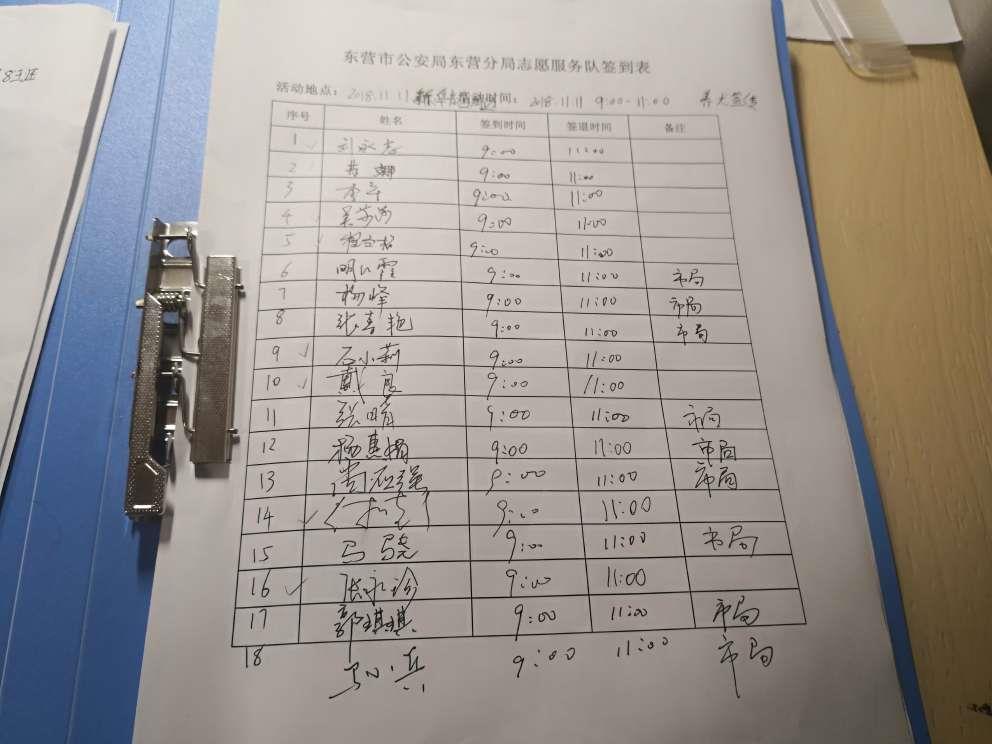 东营市公安局东营分局志愿服务队签到表
活动地点：2018.11.11 活动时间：2018.11.11 9:00-11:00 养犬宣传
序号 姓名 签到时间 签退时间 备注
1 刘永志 9:00 11:00
2 9:00 11:00
3 9:00 11:00
4 9:00 11:00
5 9:00 11:00
6 9:00 11:00 市局
7 杨峰 9:00 11:00 市局
8 张春艳 9:00 11:00 市局
9 ✓ 石小莉 9:00 11:00
10 ✓ 戴 9:00 11:00
11 张晴 9:00 11:00 市局
12 杨真 9:00 11:00 市局
13 尚 强 9:00 11:00 市局
14 ✓ 9:00 11:00
15 马骁 9:00 11:00 市局
16 ✓ 张永珍 9:00 11:00
17 郭琪琪 9:00 11:00 市局
18 马小兵 9:00 11:00 市局